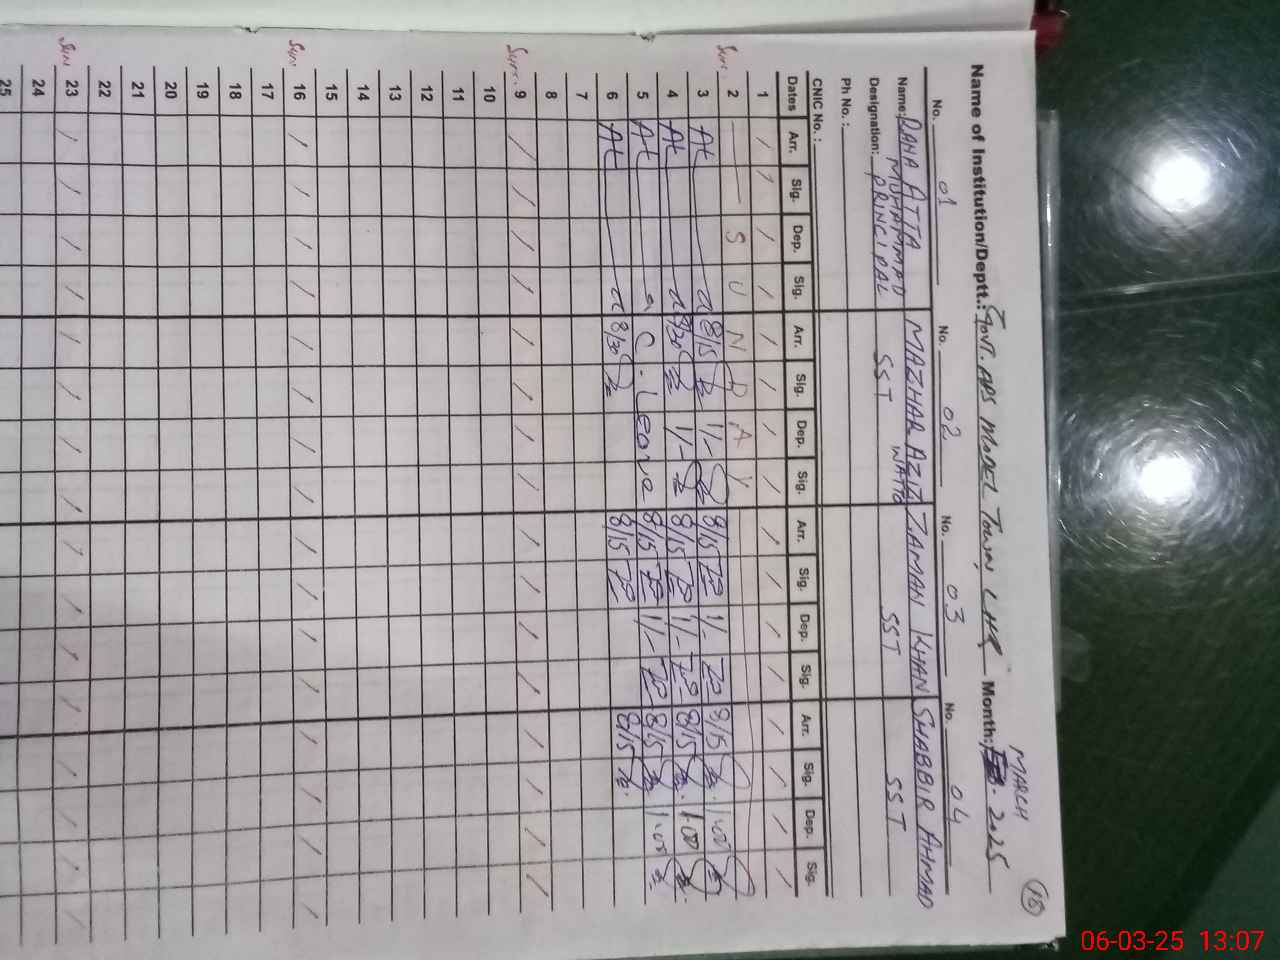 (18)
MARCH
Name of Institution/Deptt.: GOVT. APS MODEL TOWN, LHR Month: 2025
No. 01 No. 02 No. 03 No. 04
Name: RANA ATTA MUHAMMAD MAZHAR AZIZ WATTO ZAMAN KHAN SHABBIR AHMAD
Designation: PRINCIPAL SST SST SST
Ph No. :
CNIC No. :
Dates Arr. Sig. Dep. Sig. Arr. Sig. Dep. Sig. Arr. Sig. Dep. Sig. Arr. Sig. Dep. Sig.
1
Sun. 2 S U N D A Y
3 At a 8/15 1/- 8/15 1/- 8/15 1.00
4 At a 8/30 1/- 8/15 1/- 8/15 1.00
5 At a C. Leave 8/15 1/- 8/15 1.00
6 At a 8/30 8/15 8/15
7
8
Sun. 9
10
11
12
13
14
15
Sun. 16
17
18
19
20
21
22
Sun 23
24
25
06-03-25 13:07